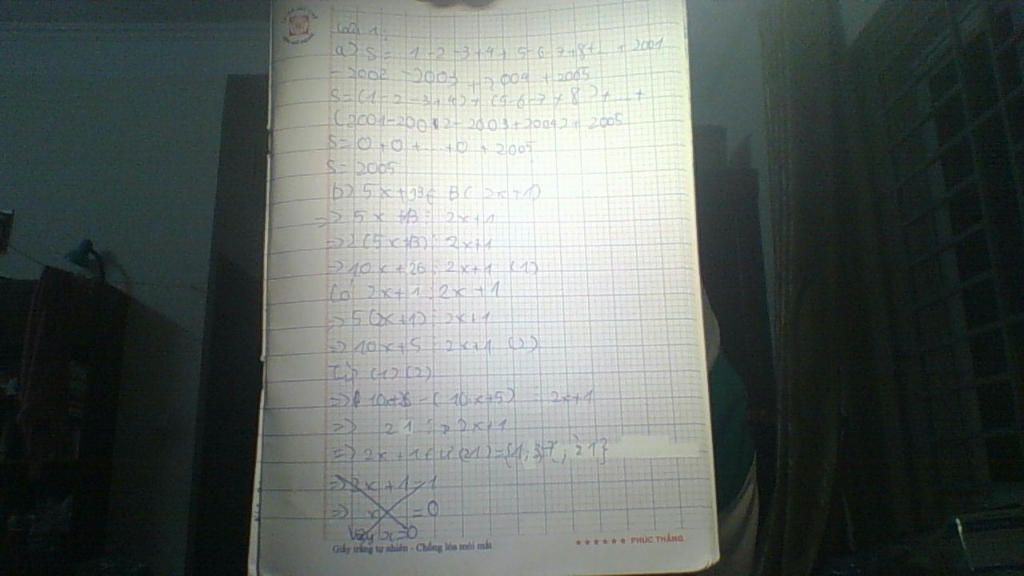 Câu 1:
a) S = 1-2-3+4+5-6-7+8+...+2001
-2002-2003+2004+2005
S=(1-2-3+4)+(5-6-7+8)+...+
(2001-2002-2003+2004)+2005
S=0+0+...+0+2005
S=2005
b) 5x+13∈B(2x+1)
=> 5x+13⋮2x+1
=> 2(5x+13)⋮2x+1
=> 10x+26⋮2x+1 (1)
Có 2x+1⋮2x+1
=> 5(2x+1)⋮2x+1
=> 10x+5⋮2x+1 (2)
Từ (1)(2)
=> -(10x+5)⋮2x+1
=> 21⋮2x+1
=> 2x+1∈Ư(21)={1;3;7;21}
=> 2x+1=1
=> x=0
Vậy x=0
Giấy trắng tự nhiên - Chống lóa mỏi mắt
PHÚC THẮNG